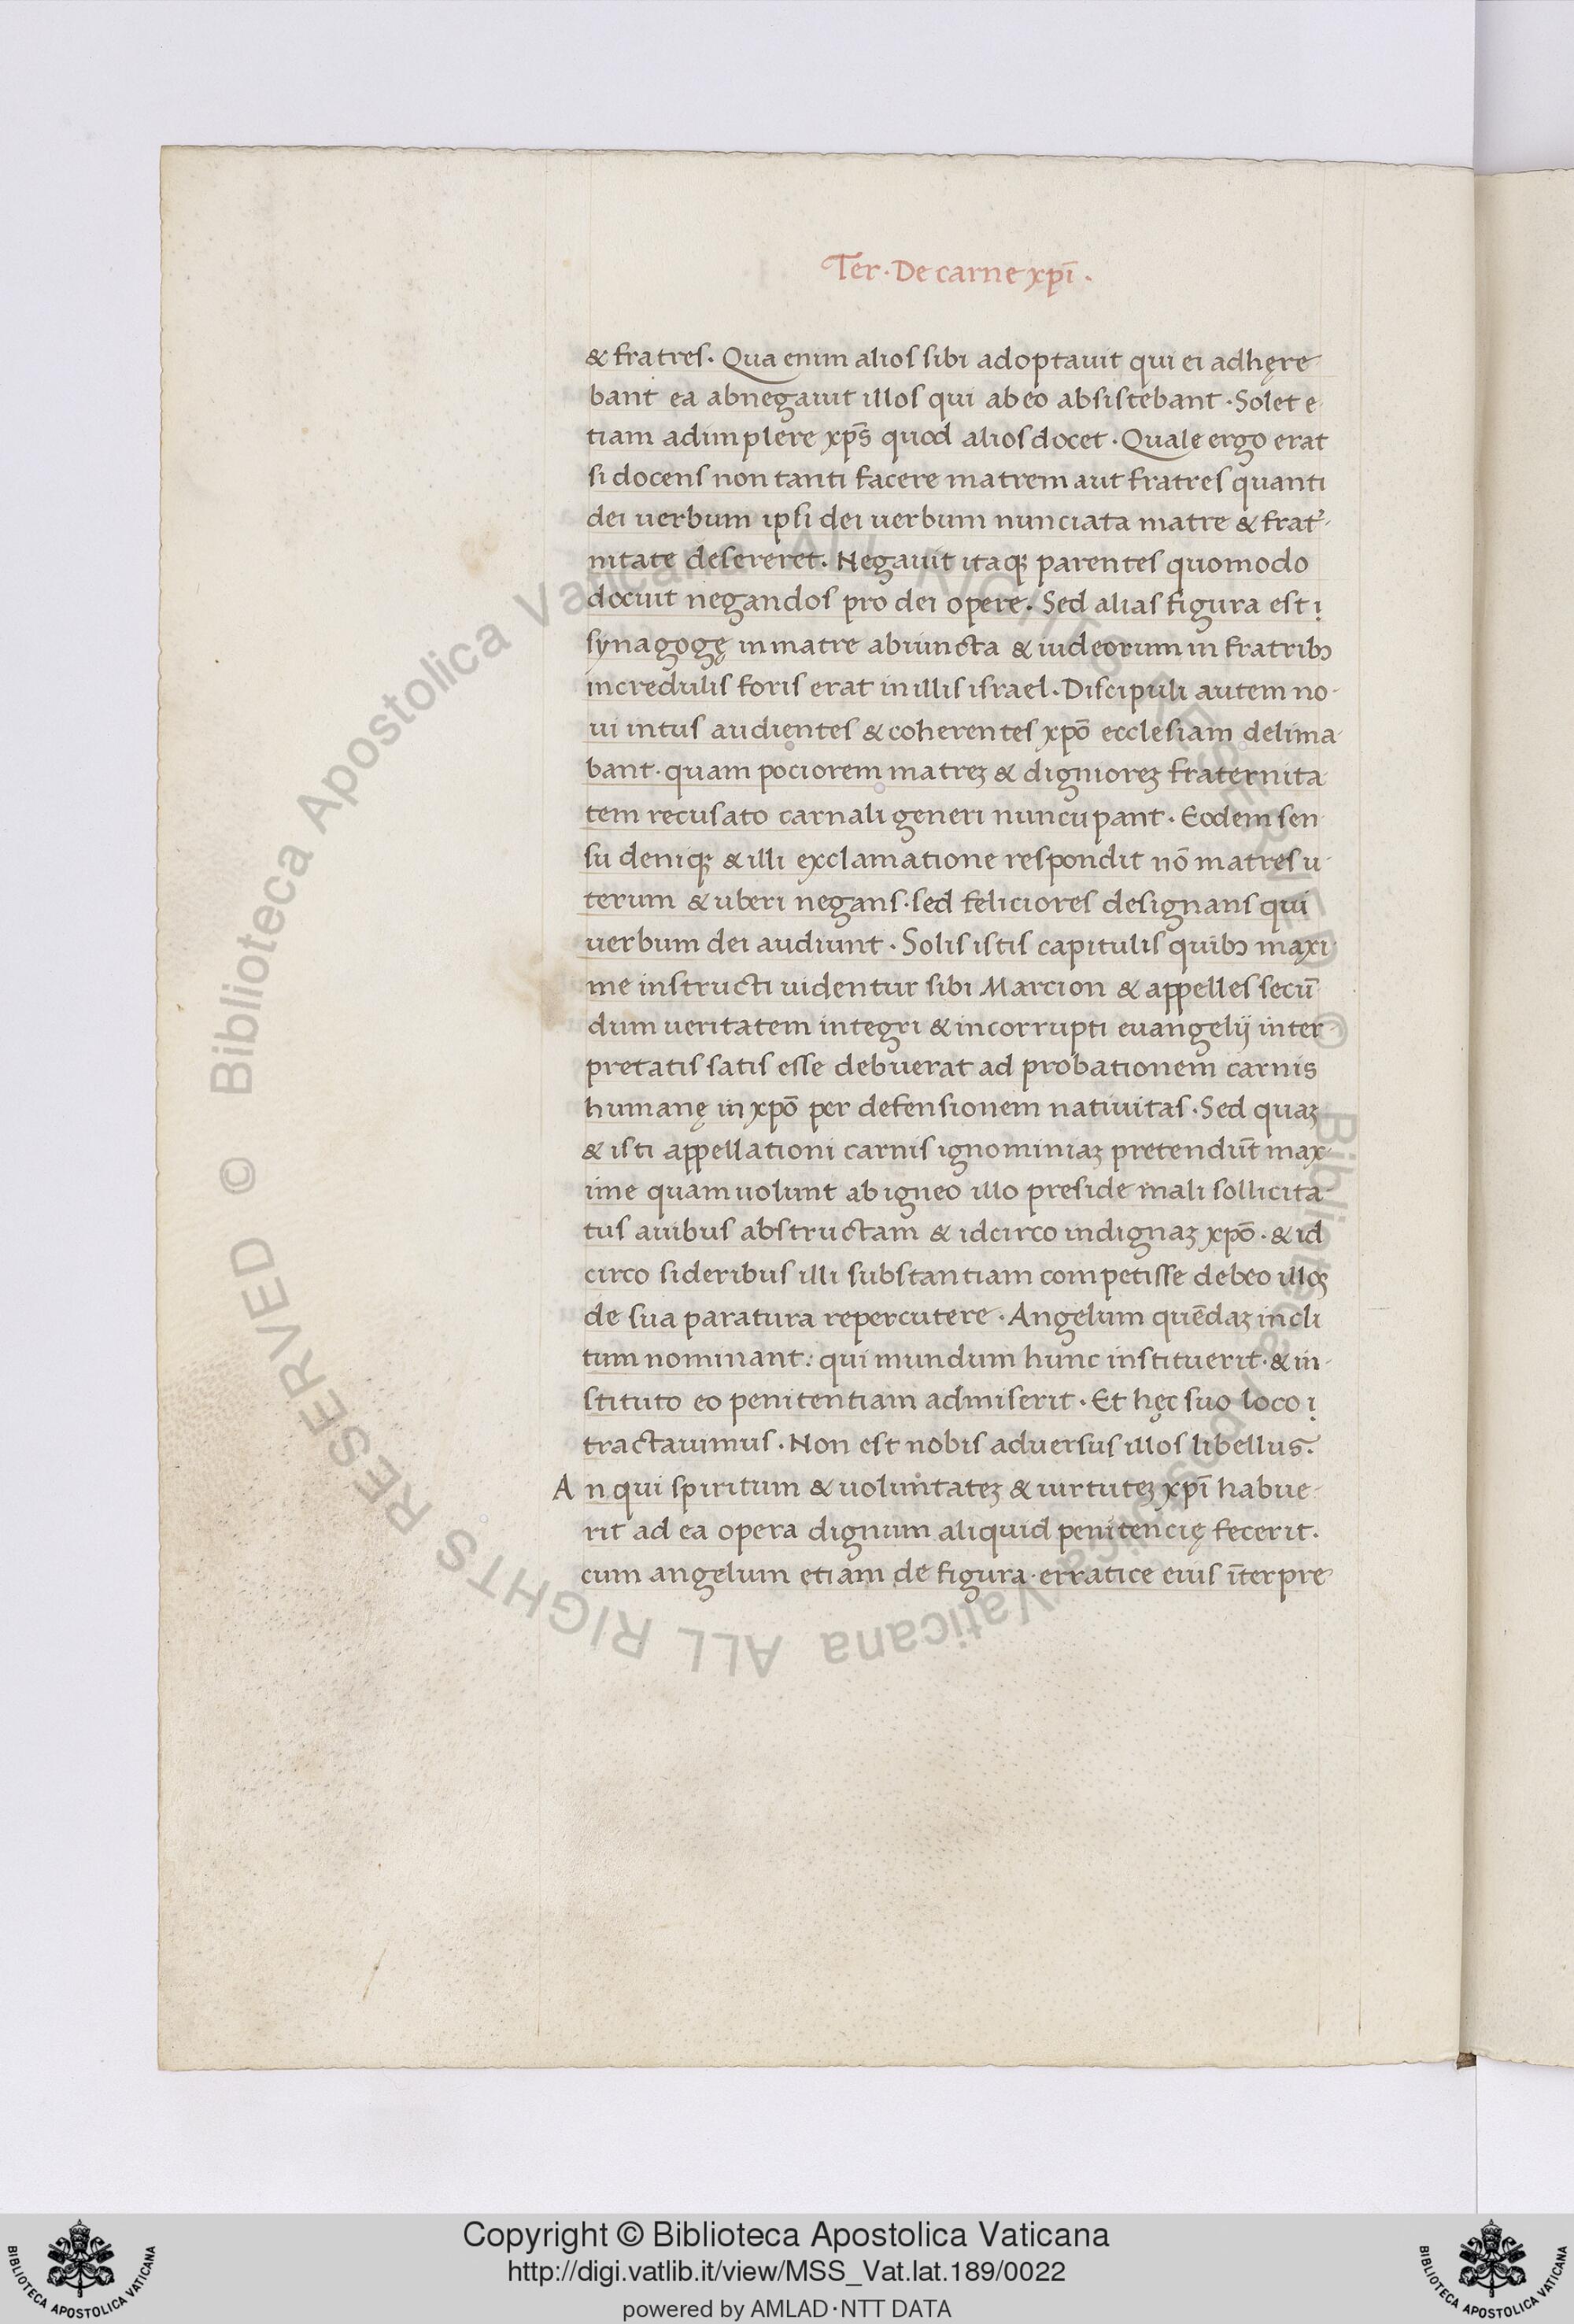 Ter · De carne xpi̅ .
& fratres . Qua enim alios sibi adoptauit qui ei adhęre
bant ea abnegauit illos qui ab eo absistebant . Solet e
tiam adimplere xps̅ quod alios docet . Quale ergo erat
si docens non tanti facere matrem aut fratres quanti
dei uerbum ipsi dei uerbum nunciata matre & frat̓-
nitate desereret . Negauit itaqꝫ parentes quomodo
docuit negandos pro dei opere . Sed alias figura est ị
synagogę in matre abiuncta & iudeorum in fratribꝰ
incredulis foris erat in illis israel . Discipuli autem no-
ui intus audientes & coherentes xpo̅ ecclesiam delima
bant · quam pociorem matreꝫ & dignioreꝫ fraternita
tem recusato carnali generi nuncupant . Eodem sen
su deniqꝫ & illi exclamatione respondit no̅ matres u-
terum & uberi negans · sed feliciores designans qui
uerbum dei audiunt . Solis istis capitulis quibꝰ maxi
me instructi uidentur sibi Marcion & appelles secu̅
dum ueritatem integri & incorrupti euangelij inter-
pretatis satis esse debuerat ad probationem carnis
humanę in xpo̅ per defensionem natiuitas . Sed quaꝫ
& isti appellationi carnis ignominiaꝫ pretendu̅t max-
ime quam uolunt ab igneo illo preside mali sollicita-
tus auibus abstructam & idcirco indignaꝫ xpo̅ . & id
circo sideribus illi substantiam competisse debeo illoꝫ
de sua paratura repercutere . Angelum que̅daꝫ incli
tum nominant : qui mundum hunc instituerit . & in-
stituto eo penitentiam admiserit . Et hęc suo loco ị
tractauimus . Non est nobis aduersus illos libellus .
An qui spiritum & uolumtateꝫ & uirtuteꝫ xpi̅ habue-
rit ad ea opera dignum aliquid penitencię fecerit .
cum angelum etiam de figura · erratice eius i̅terpre
Copyright © Biblioteca Apostolica Vaticana
http://digi.vatlib.it/view/MSS_Vat.lat.189/0022
powered by AMLAD·NTT DATA
BIBLIOTECA APOSTOLICA VATICANA
BIBLIOTECA APOSTOLICA VATICANA
© Biblioteca Apostolica Vaticana ALL RIGHTS RESERVED © Biblioteca Apostolica Vaticana ALL RIGHTS RESERVED